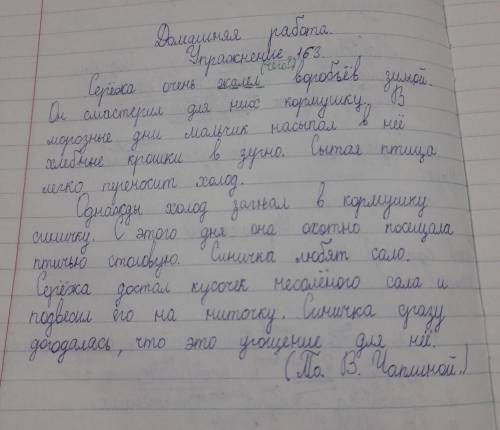 Домашняя работа.
Упражнение 163.
(чего?)
Серёжа очень жалел воробьёв зимой.
Он смастерил для них кормушку. В
морозные дни мальчик насыпал в неё
хлебные крошки и зерно. Сытая птица
легко переносит холод.
Однажды холод загнал в кормушку
синичку. С этого дня она охотно посещала
птичью столовую. Синички любят сало.
Серёжа достал кусочек несолёного сала и
подвесил его на ниточку. Синичка сразу
догодалась, что это угощение для неё.
(По В. Чаплиной.)